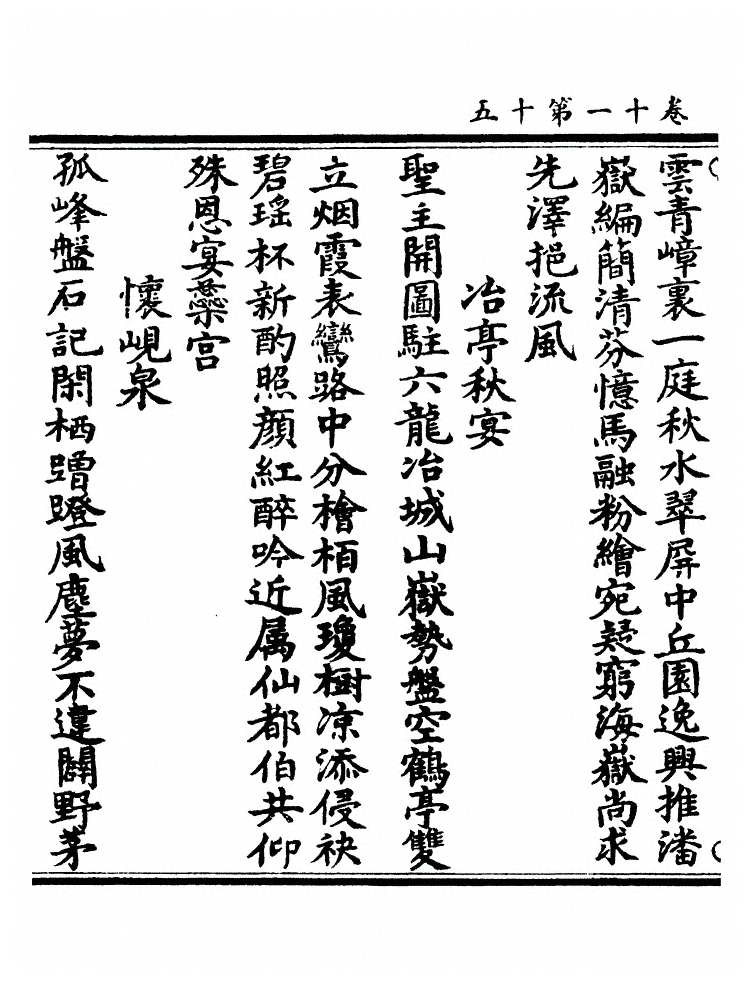 卷十一第十五
雲青嶂裏一庭秋水翠屏中丘園逸興推潘
嶽編簡清芬憶馬融粉繪宛疑窮海嶽尚求
先澤挹流風
冶亭秋宴
聖主開圖駐六龍冶城山嶽勢盤空鶴亭雙
立烟霞表鸞路中分檜栢風瓊樹凉添侵袂
碧瑤杯新酌照顔紅醉吟近属仙都伯共仰
殊恩宴蘂宫
懷峴泉
孤峰盤石記閑栖蹭蹬風塵夢不違闢野茅